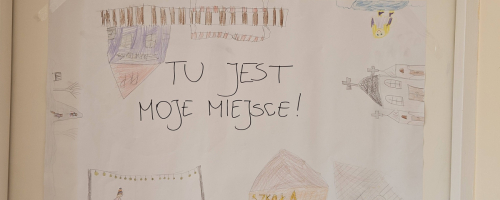 TU JEST
MOJE MIEJSCE!